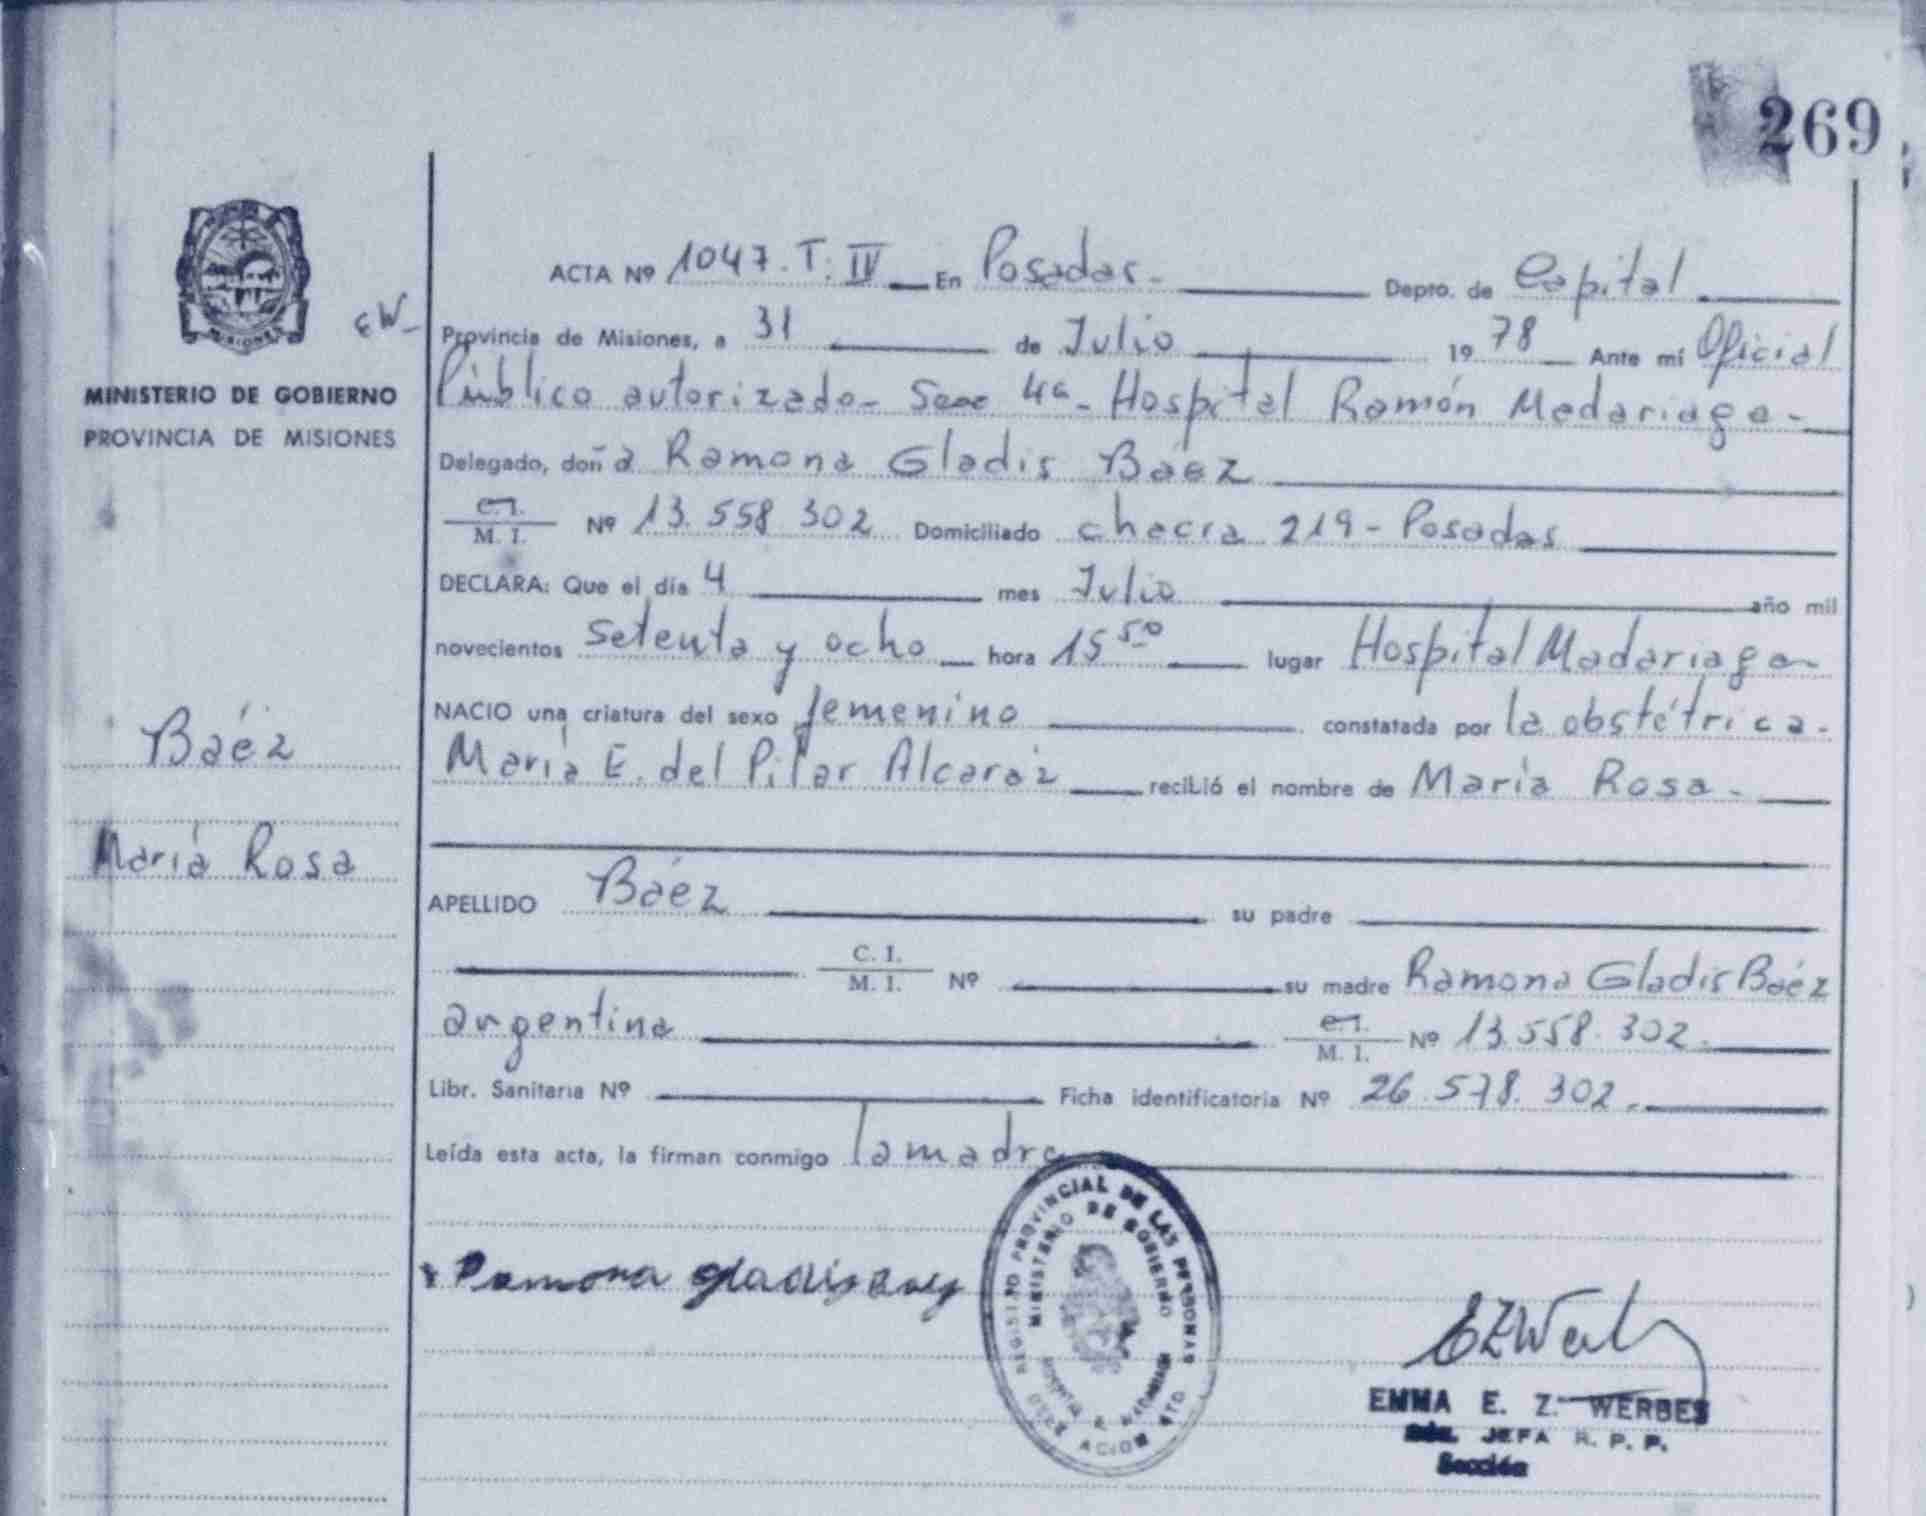 269
MISIONES
MINISTERIO DE GOBIERNO
PROVINCIA DE MISIONES
EW
Báez
María Rosa
ACTA Nº 1047. T. IV En Posadas - Depto. de Capital
Provincia de Misiones, a 31 de Julio 19 78 Ante mí Oficial
Público autorizado - Secc 4ª - Hospital Ramón Madariaga -
Delegado, doña Ramona Gladis Báez
C.I.
M. I. Nº 13.558 302 Domiciliado chacra 219 - Posadas
DECLARA: Que el día 4 mes Julio año mil
novecientos setenta y ocho hora 15 50 lugar Hospital Madariaga
NACIO una criatura del sexo femenino constatada por la obstétrica -
María E. del Pilar Alcaráz recibió el nombre de María Rosa -
APELLIDO Báez su padre
C. I.
M. I. Nº su madre Ramona Gladis Báez
argentina C.I.
M. I. Nº 13.558.302
Libr. Sanitaria Nº Ficha identificatoria Nº 26.578.302 -
Leída esta acta, la firman conmigo la madre
Ramona gladis Baez
REGISTRO PROVINCIAL DE LAS PERSONAS
MINISTERIO DE GOBIERNO
EZWerb
EMMA E. Z. WERBES
JEFA R. P. P.
Sección